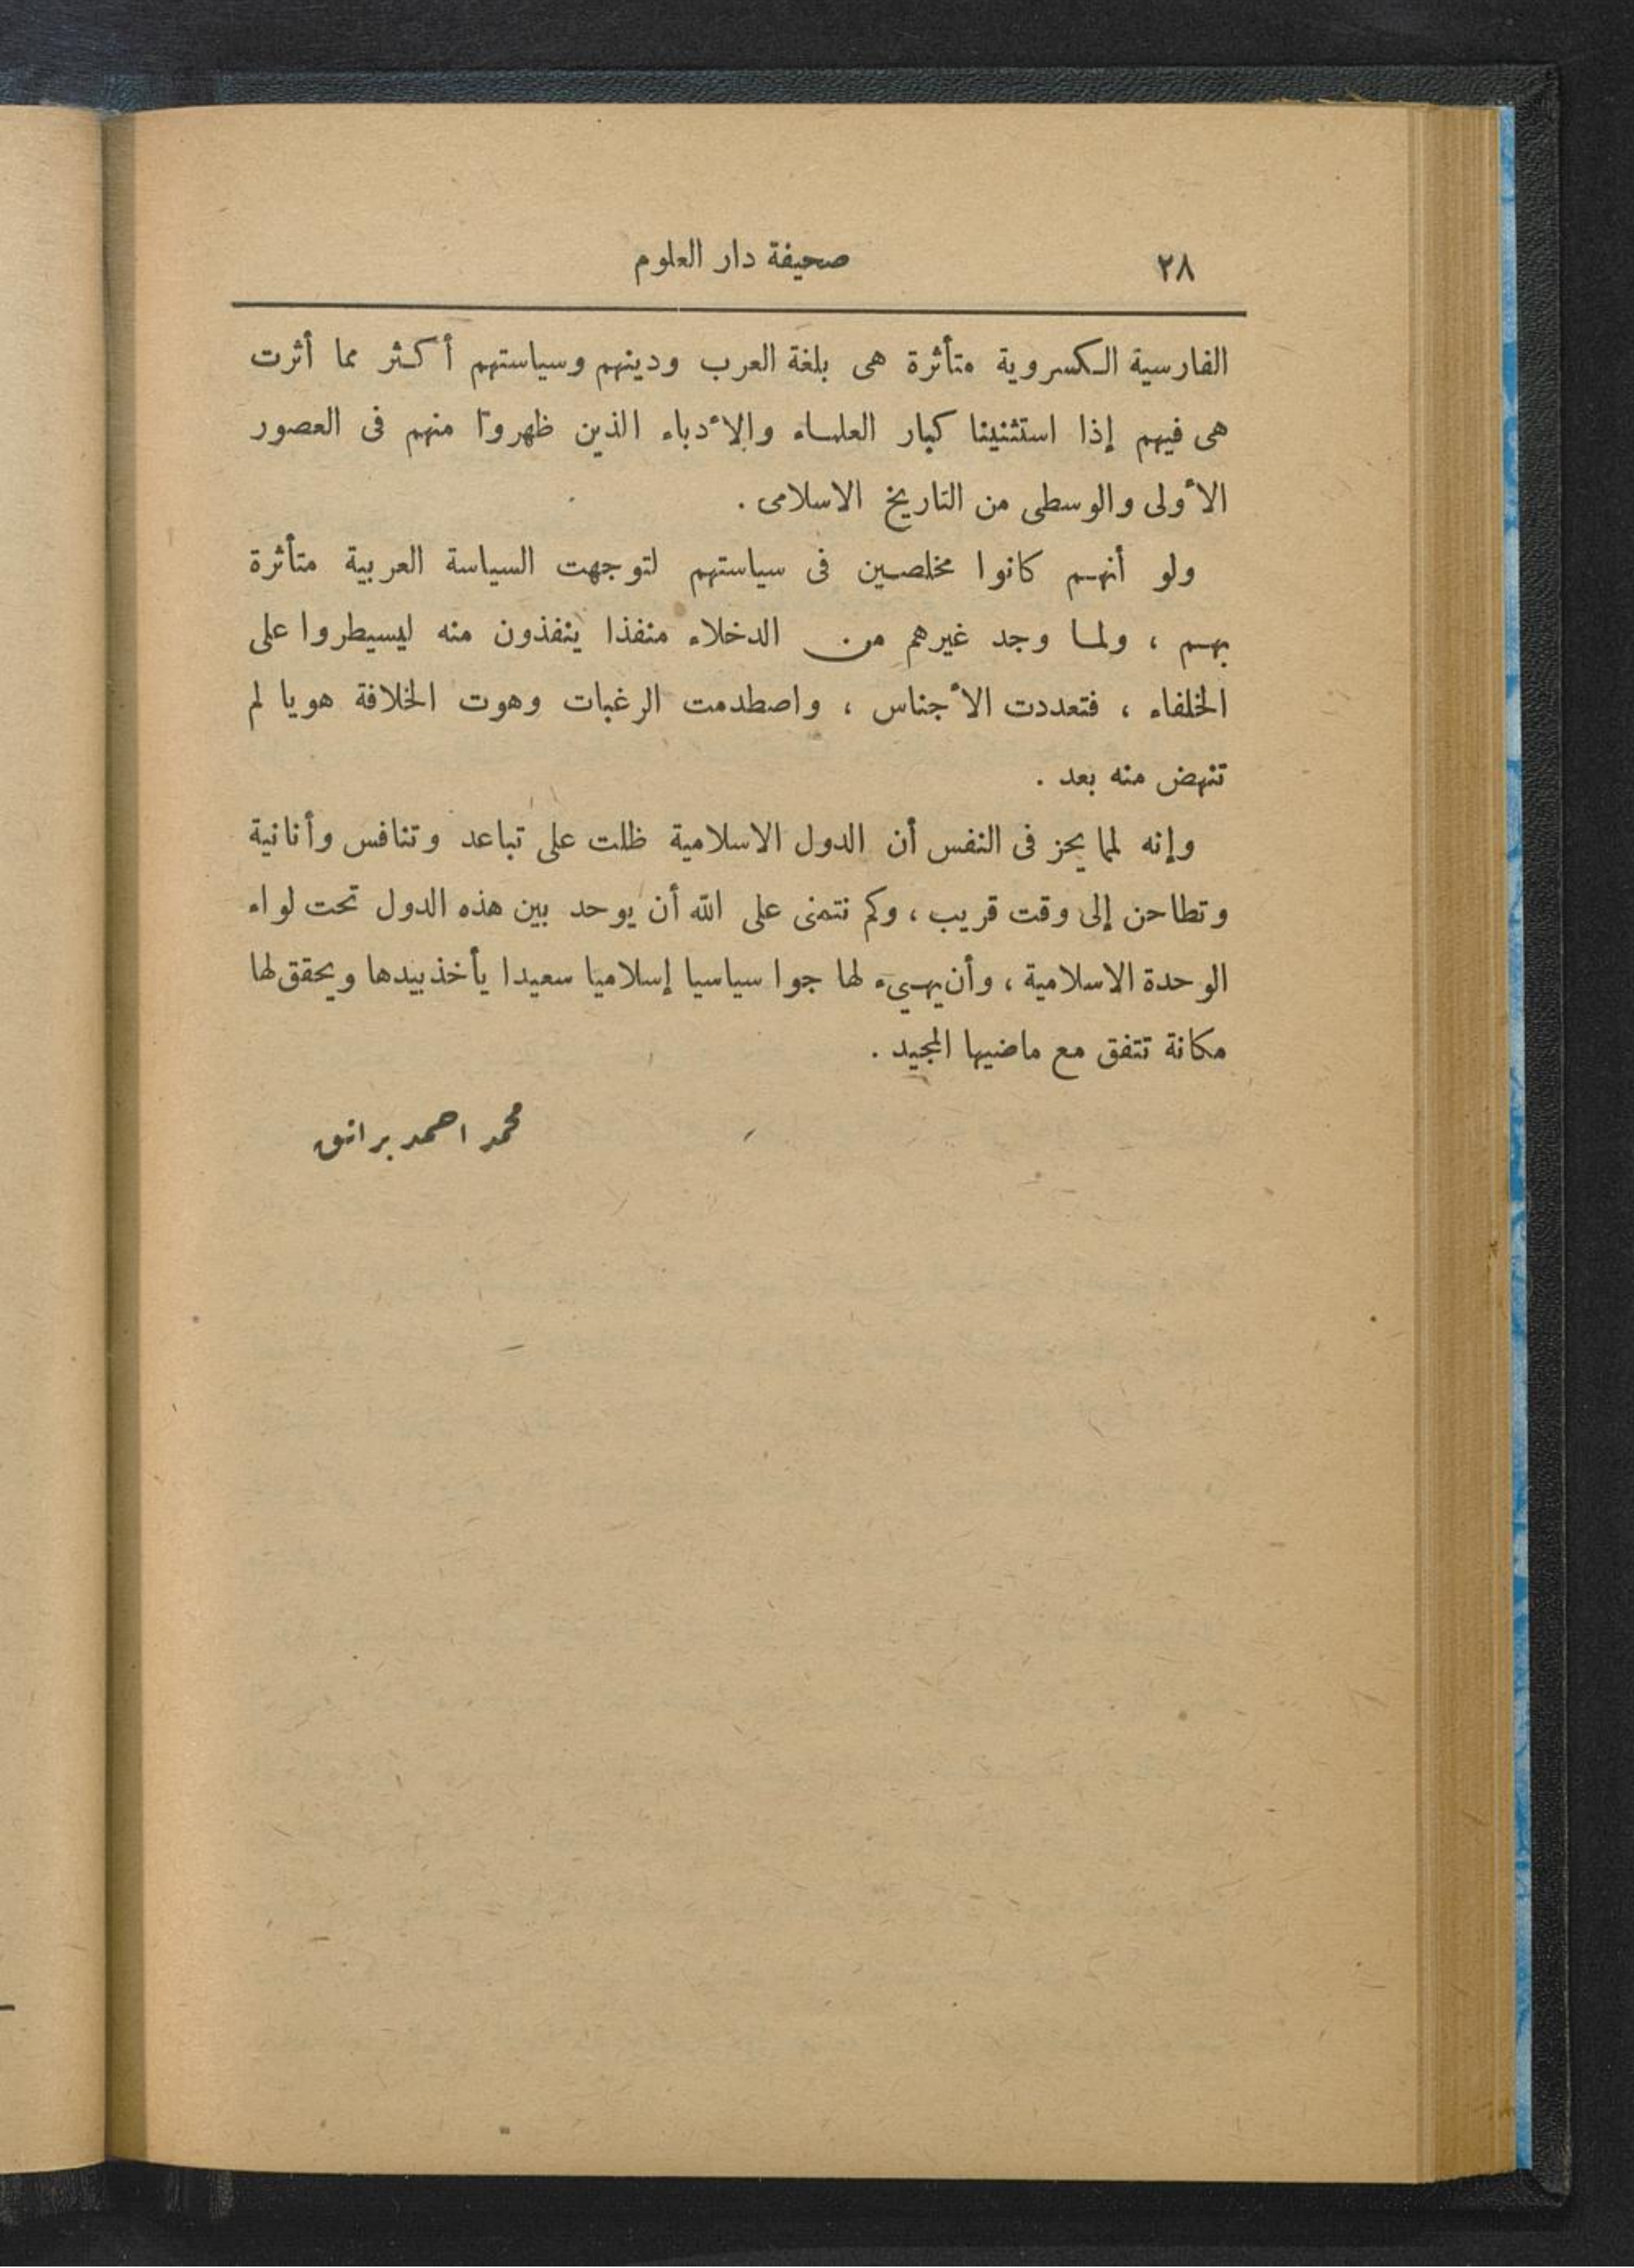 ٢٨
صحيفة دار العلوم
الفارسية الكسروية متأثرة هى بلغة العرب ودينهم وسياستهم أكثر مما أثرت
هى فيهم إذا استثنينا كبار العلماء والأدباء الذين ظهروا منهم فى العصور
الأولى والوسطى من التاريخ الاسلامى .
ولو أنهم كانوا مخلصين فى سياستهم لتوجهت السياسة العربية متأثرة
بهم ، ولما وجد غيرهم من الدخلاء منفذا ينفذون منه ليسيطروا على
الخلفاء ، فتعددت الأجناس ، واصطدمت الرغبات وهوت الخلافة هويا لم
تنهض منه بعد .
وإنه لمما يحز فى النفس أن الدول الاسلامية ظلت على تباعد وتنافس وأنانية
وتطاحن إلى وقت قريب ، وكم نتمنى على الله أن يوحد بين هذه الدول تحت لواء
الوحدة الاسلامية ، وأن يهيىء لها جوا سياسيا إسلاميا سعيدا يأخذ بيدها ويحقق لها
مكانة تتفق مع ماضيها المجيد .
محمد احمد برانق